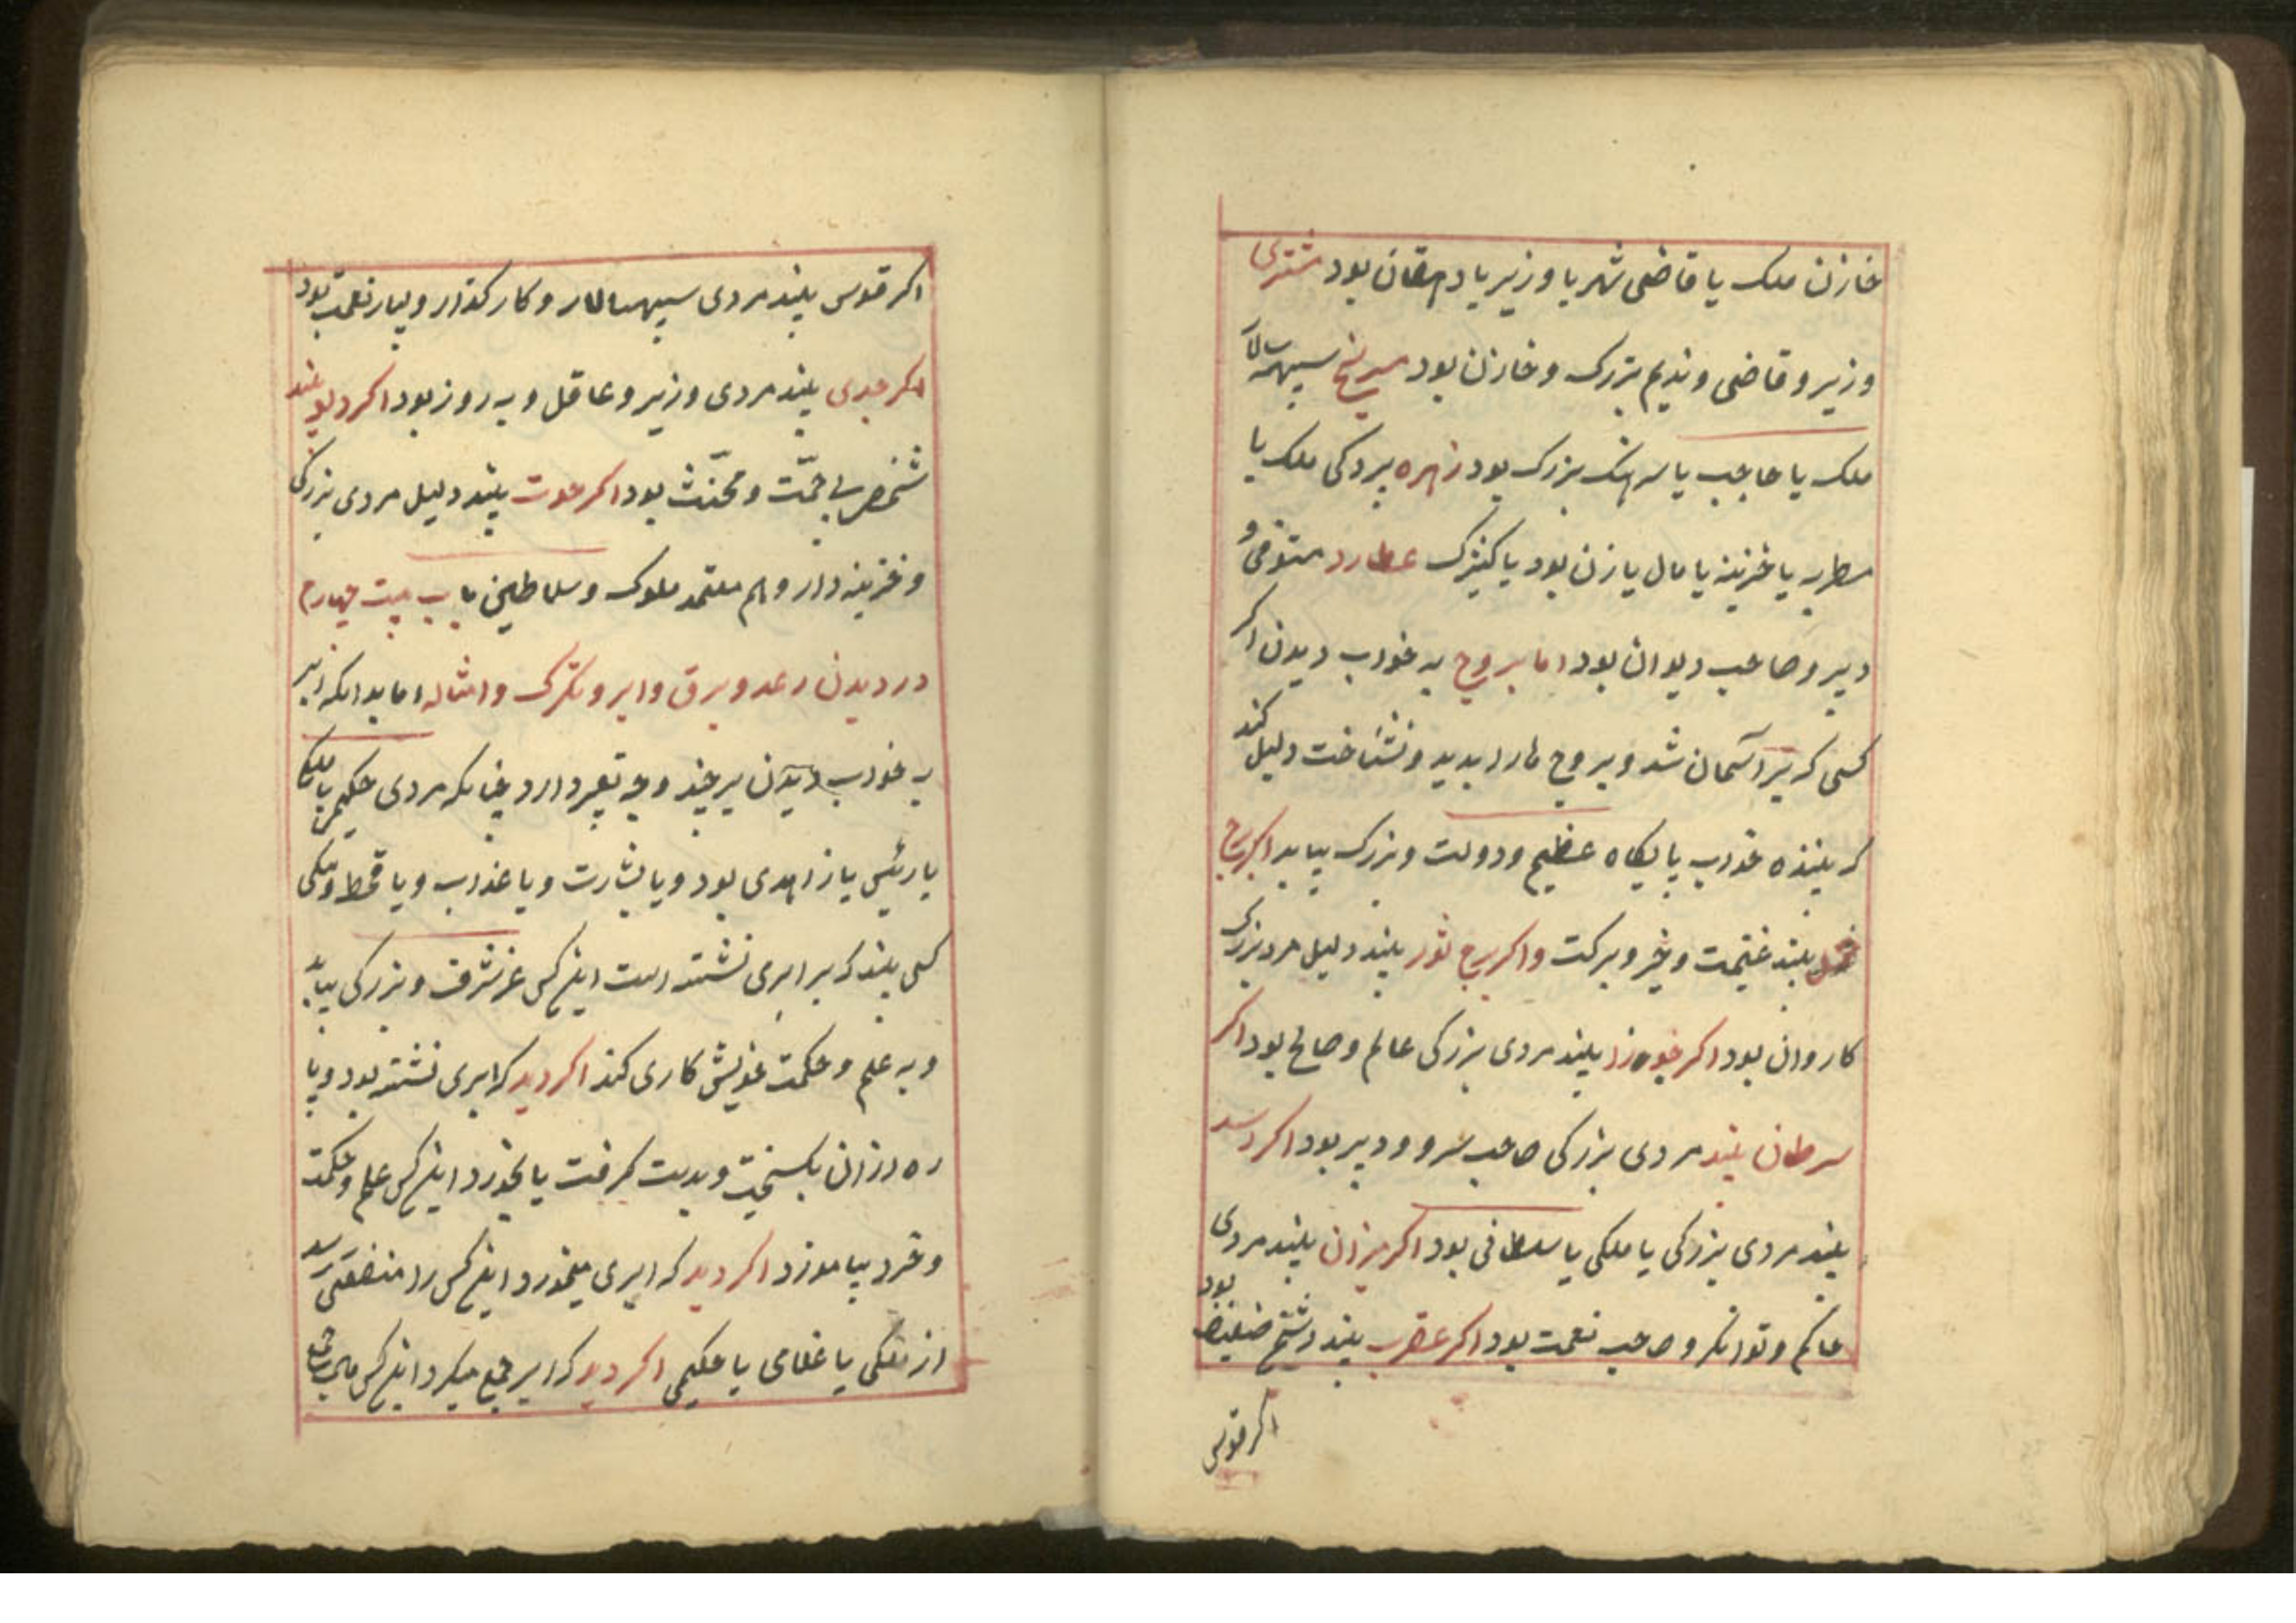 خازن ملک یا قاضی شهر یا وزیر یا دهقان بود مشتری
وزیر و قاضی و ندیم بزرک و خازن بود مریخ سپهسالار
ملک یا حاجب یا سرهنک بزرک بود زهره پردکی ملک یا
مطربه یا خزینه یا مال یا زن بود یا کنیزک عطارد مستوفی و
دبیر و صاحب دیوان بود اما بروج به خواب دیدن اکر
کسی که بر آسمان شد و بروج ها را بدید و نشناخت دلیل کند
که بیننده خواب پایکاه عظیم و دولت و بزرک بیابد اکر برج
حمل بیند غنیمت و خیر و برکت و اکر برج ثور بیند دلیل مرد بزرک
کاروان بود اکر جوزا بیند مردی بزرکی عالم و صالح بود اکر
سرطان بیند مردی بزرکی صاحب و دبیر بود اکر اسد
بیند مردی بزرکی یا ملکی یا سلطانی بود اکر میزان بیند مردی
حاکم و توانکر و صاحب نعمت بود اکر عقرب بیند ضعیف بود
اکر قوس
اکر قوس بیند مردی سپهسالار و کارکذار و بسیار نعمت بود
اکر جدی بیند مردی وزیر و عاقل و به روز بود اکر دلو بیند
شخص بی همّت و مخنّث بود اکر حوت بیند دلیل مردی بزرکی
و خزینه دار و هم معتمد ملوک و سلاطین باب بیست چهارم
در دیدن رعد و برق و ابر و تکرک و امثاله اما بدانکه ابر
به خواب دیدن بر چند وجه تعبیر دارد چنانکه مردی حکیم یا ملکی
یا رئیس یا زاهدی بود و یا بشارت و یا عذاب و یا قحط و
کسی بیند که بر ابری نشسته است اینکس عز شرف و بزرکی بیابد
و به علم و حکمت خویش کاری کند اکر دید که ابری نشسته بود و یا
و بدست کرفت یا بخورد اینکس علم و حکمت
و خرد بیاموزد اکر دید که ابری میخورد اینکس را منفعتی رسد
از ملکی یا غلامی یا حکیمی اکر دید که ابر جمع میکرد اینکس